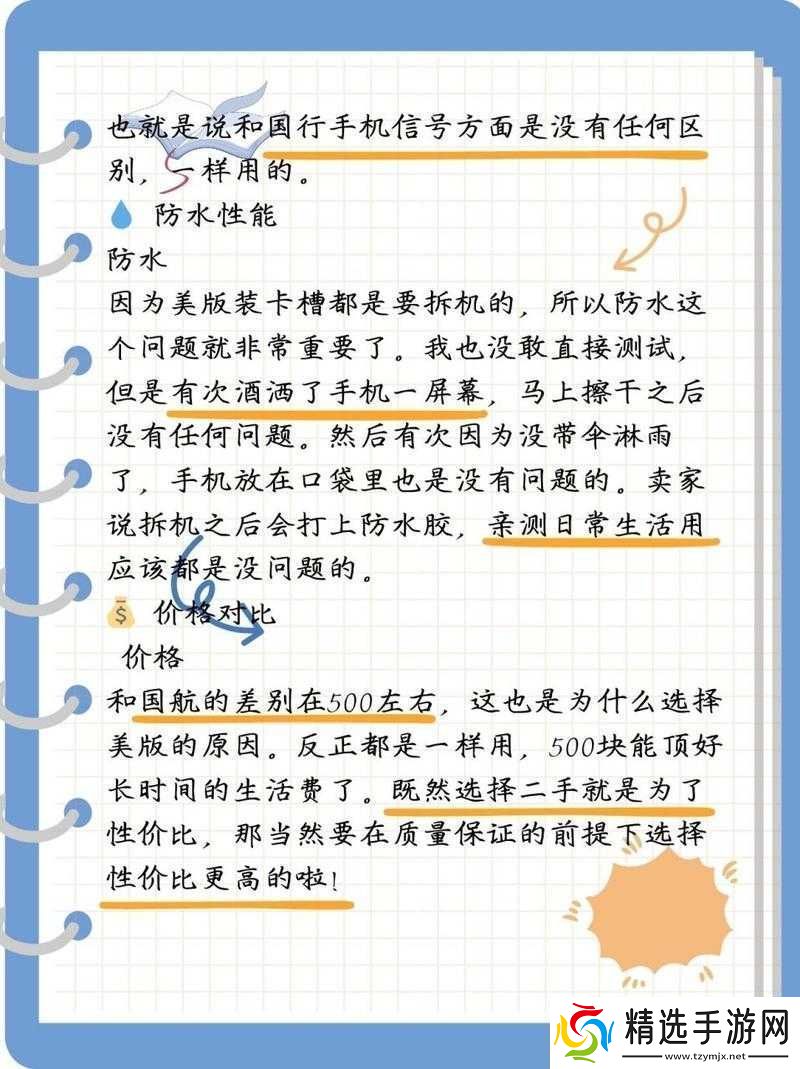 也就是说和国行手机信号方面是没有任何区
别，一样用的。
防水性能
防水
因为美版装卡槽都是要拆机的，所以防水这
个问题就非常重要了。我也没敢直接测试，
但是有次酒洒了手机一屏幕，马上擦干之后
没有任何问题。然后有次因为没带伞淋雨
了，手机放在口袋里也是没有问题的。卖家
说拆机之后会打上防水胶，亲测日常生活用
应该都是没问题的。
价格对比
价格
和国航的差别在500左右，这也是为什么选择
美版的原因。反正都是一样用，500块能顶好
长时间的生活费了。既然选择二手就是为了
性价比，那当然要在质量保证的前提下选择
性价比更高的啦！
精选手游网
www.tzymjx.net